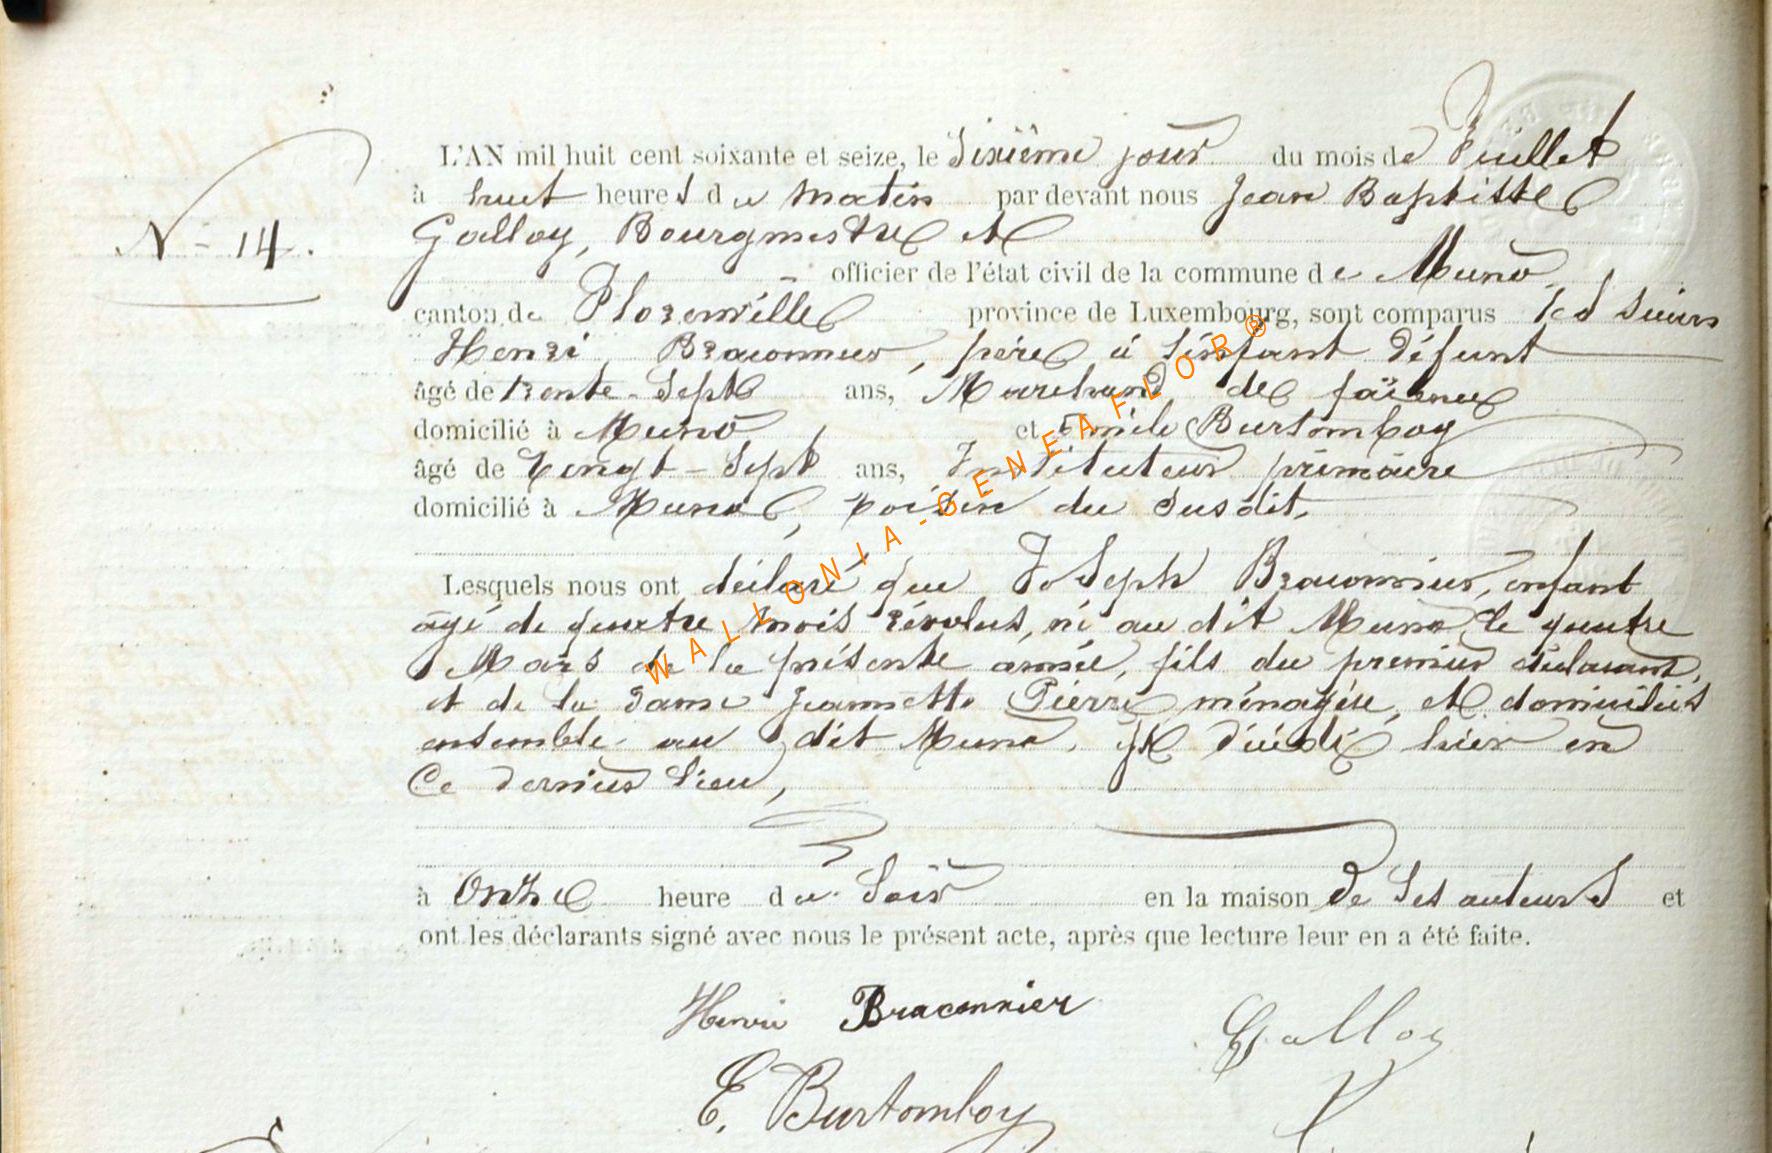 L'AN mil huit cent soixante et seize, le Sixième jour du mois de Juillet
N° 14.
à huit heures du matin par devant nous Jean Baptiste
Galloy, Bourgmestre et
officier de l'état civil de la commune de Muno
canton de Florenville province de Luxembourg, sont comparus les sieurs
Henri Braconnier, père à l'enfant défunt
âgé de trente-sept ans, Marchand de faïence
domicilié à Muno, et Emile Burtomboy
âgé de vingt-sept ans, Instituteur primaire
domicilié à Muno, voisin du susdit.
Lesquels nous ont déclaré que Joseph Braconnier, enfant
âgé de quatre mois révolus, né au dit Muno, le quatre
Mars de la présente année, fils du premier déclarant,
et de la dame Jeannette Pierre ménagère, et domiciliés
ensemble au dit Muno, est décédé hier en
ce dernier lieu,
à onze heure du soir en la maison de ses auteurs et
ont les déclarants signé avec nous le présent acte, après que lecture leur en a été faite.
Henri Braconnier
Galloy
E. Burtomboy
WALLONIA-GENEAFLOR®